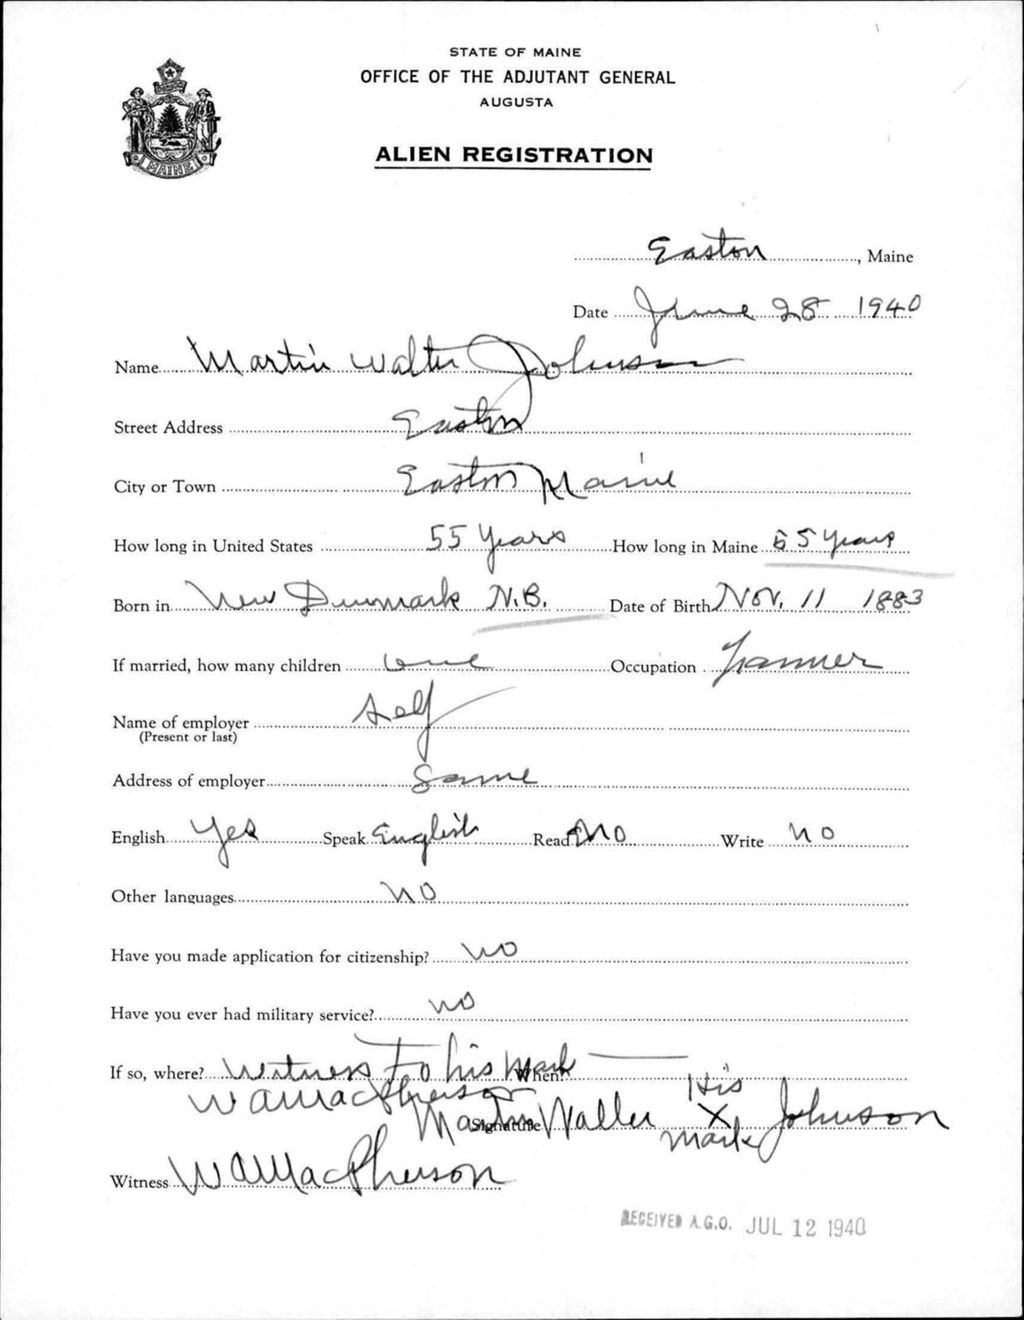 STATE OF MAINE
OFFICE OF THE ADJUTANT GENERAL
AUGUSTA
ALIEN REGISTRATION
MAINE
Easton, Maine
Date June 28 1940
Name Martin Walter Johnson
Street Address Easton
City or Town Easton Maine
How long in United States 55 Years How long in Maine 55 Years
Born in New Denmark N.B. Date of Birth Nov. 11 1883
If married, how many children one Occupation Farmer
Name of employer Self
(Present or last)
Address of employer Same
English Yes Speak English Read No Write No
Other languages No
Have you made application for citizenship? No
Have you ever had military service? No
If so, where? Witness To his Mark When?
W A MacPherson His
Signature Martin Walter X Johnson
Mark
Witness W A MacPherson
RECEIVED A.G.O. JUL 12 1940